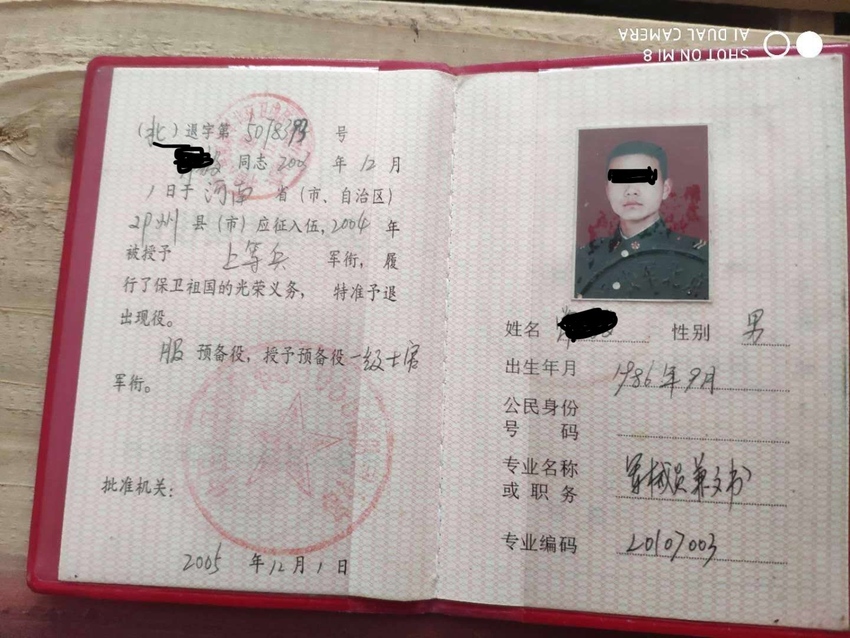 (北)退字第 5078393 号
同志 2003 年 12 月
1 日于 河南 省(市、自治区)
邓州 县(市)应征入伍,2004 年
被授予 上等兵 军衔,履
行了保卫祖国的光荣义务, 特准予退
出现役。
服 预备役,授予预备役 一级士官
军衔。
批准机关:
2005 年 12 月 1 日
姓名 性别 男
出生年月 1986年9月
公民身份
号 码
专业名称 军械员兼文书
或 职 务
专业编码 20107003
SHOT ON MI 8
AI DUAL CAMERA